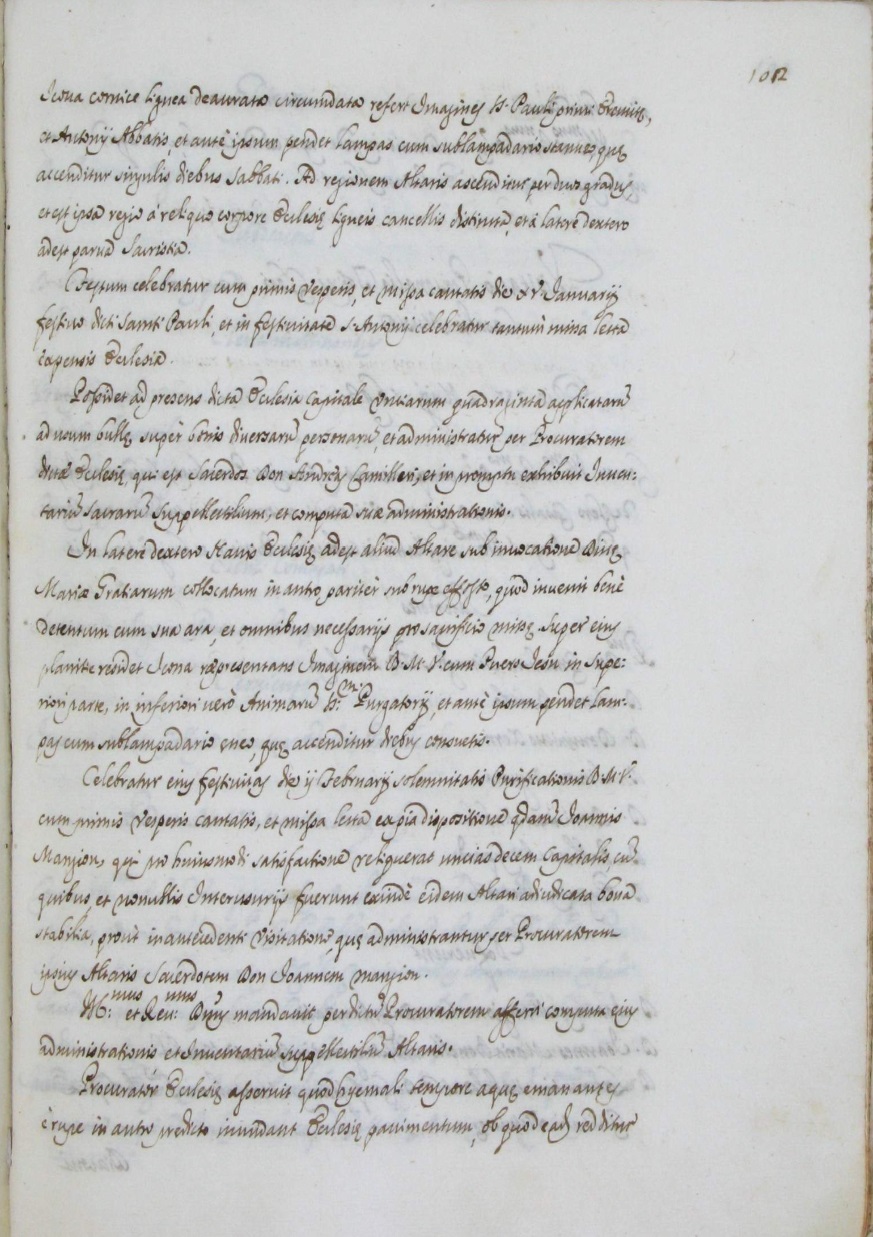 102
Icona cornice lignea deaurata circumdata refert Imagines S. Pauli primi Eremitę,
et Antonij Abbatis, et antè ipsum pendet lampas cum sublampadario stanneo, quę
accenditur singulis diebus Sabbati. Ad regionem Altaris ascenditur per duos gradus,
et est ipsa regio à reliquo corpore Ecclesię ligneis cancellis distincta, et à latere dextero
adest parua Sacristia.
Festum celebratur cum primis Vesperis, et Missa cantatis die XV. Januarij
festiuo dicti Sancti Pauli, et in festiuitate S. Antonij celebratur tantùm missa lecta
expensis Ecclesiæ.
Possidet ad presens dicta Ecclesia Capitale Vnciarum quadraginta applicatarũ
ad usum bullę super bonis diuersarũ personarũ, et administratur per Procuratorem
dictæ Ecclesię, qui est Sacerdos Don Andreas Camilleri, et in promptu exhibuit Inuen:
tariũ Sacrarũ Suppellectilium, et computa suæ administrationis.
In latere dextero Nauis Ecclesię adest aliud Altare sub inuocatione Diuę
Mariæ Gratiarum collocatum in antro pariter sub rupe effosso, quod inuenit benè
detentum cum sua ara, et omnibus necessarijs pro sacrificio missę. Super eius
planitie residet Icona repræsentans Imaginem B. M. V. cum Puero Jesu in Supe:
riori parte, in inferiori verò Animarũ S:m. Purgatorij, et antè ipsum pendet lam:
pas cum sublampadario ęneo, quę accenditur diebus consuetis.
Celebratur eius festiuitas die ij Februarij solemnitatis Purificationis B. M. V.
cum primis Vesperis cantatis, et missa lecta ex pia dispositione qdam Joannis
Mangion, qui pro huiusmodi satisfactione reliquerat uncias decem Capitalis, cũ
quibus, et nonnullis Interusurijs fuerunt exindè eidem Altari adiudicata bona
stabilia, prout in antecedenti Visitatione, quę administrantur per Procuratorem
ipsius Altaris Sacerdotem Don Joannem Mangion.
Ill:mus et Reu:mus Dnus mandauit per dictũ Procuratorem afferri computa eius
administrationis et Inuentariũ Suppellectiliũ Altaris.
Procurator Ecclesię asseruit quod hyemali tempore aquę emanantes
è rupe in antro predicto inundant Ecclesię pauimentum, ob quod eadẽ redditur